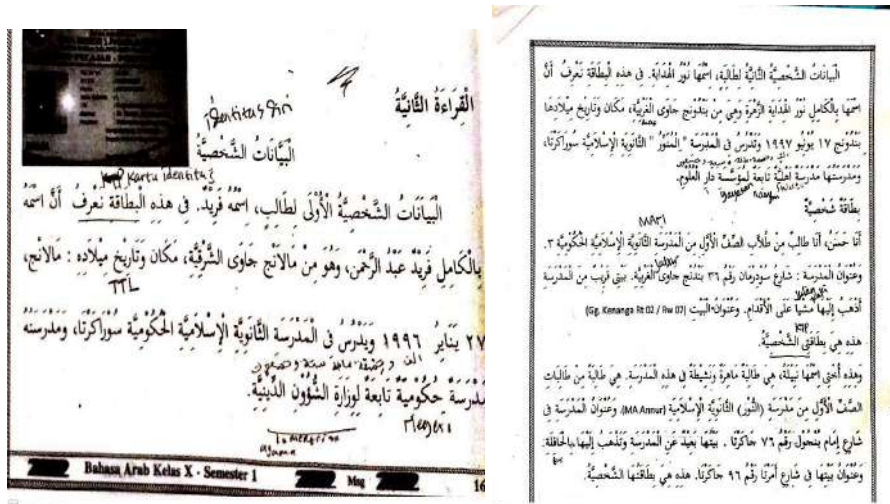 الْقِرَاءَةُ الثَّانِيَّةُ
identitas diri
الْبَيَّانَاتُ الشَّخْصِيَّةُ
Kartu identitas
الْبَيَانَاتُ الشَّخْصِيَّةُ الْأُوْلَى لِطَالِبٍ، اِسْمُهُ فَرِيْدٌ. فِى هذِهِ الْبِطَاقَة نَعْرِفُ أَنَّ اسْمَهُ
بِالْكَامِلِ فَرِيْدٌ عَبْدُ الرَّحْمٰنِ، وَهُوَ مِنْ مَالَانْج جَاوَى الشَّرْقِيَّة، مَكَان وَتَارِيخ مِيْلَادِهِ : مَالَانْج،
TTL
٢٧ يَنَايِرُ ١٩٩٦ وَيَدْرُسُ فِى الْمَدْرَسَة الثَّانَوِيَّة الْإِسْلَامِيَّة الْحُكُوْمِيَّة سُوْرَاكَرْتَا، وَمَدْرَسَتُهُ
مَدْرَسَةٌ حُكُوْمِيَّةٌ تَابِعَةٌ لِوِزَارَةِ الشُّؤُوْن الدِّيْنِيَّة.
Negeri
agama
Bahasa Arab Kelas X - Semester 1
16
الْبَيَانَاتُ الشَّخْصِيَّةُ الثَّانِيَّةُ لِطَالِبَةٍ، اِسْمُهَا نُوْرُ الْهِدَايَة. فِى هذِهِ الْبِطَاقَةِ نَعْرِفُ أَنَّ
اسْمَهَا بِالْكَامِلِ نُوْر الْهِدَايَة الزَّهْرَة وَهِيَ مِنْ بَنْدُوْنج جَاوَى الْغَرْبِيَّة، مَكَان وَتَارِيخ مِيْلَادِهَا
بَنْدُوْنج ١٧ يُوْنِيُو ١٩٩٧ وَتَدْرُسُ فِى الْمَدْرَسَة "الْمُنَوَّر" الثَّانَوِيَّة الْإِسْلَامِيَّة سُوْرَاكَرْتَا،
وَمَدْرَسَتُهَا مَدْرَسَةٌ أَهْلِيَّةٌ تَابِعَةٌ لِمُؤَسَّسَة دَارِ الْعُلُوْم.
yayasan
بِطَاقَةٌ شَخْصِيَّةٌ
أَنَا حَسَنٌ، أَنَا طَالِبٌ مِنْ طُلَّابِ الصَّفِّ الْأَوَّلِ مِنَ الْمَدْرَسَة الثَّانَوِيَّة الْإِسْلَامِيَّة الْحُكُوْمِيَّة ٣.
وَعُنْوَانُ الْمَدْرَسَة : شَارِع سُوْدِرْمَان رَقْم ٣٦ بَنْدُنْج جَاوَى الْغَرْبِيَّة. بَيْتِى قَرِيْبٌ مِنَ الْمَدْرَسَة
أَذْهَبُ إِلَيْهَا مَشْيًا عَلَى الْأَقْدَامِ. وَعُنْوَانُ الْبَيْت (Gg. Kenanga Rt 02 / Rw 07)
هذِهِ هِيَ بِطَاقَتِى الشَّخْصِيَّةُ.
وَهذِهِ أُخْتِى اِسْمُهَا نَبِيْلَةُ، هِيَ طَالِبَةٌ مَاهِرَةٌ وَنَشِيْطَةٌ فِى هذِهِ الْمَدْرَسَة. هِيَ طَالِبَةٌ مِنْ طَالِبَات
الصَّفِّ الْأَوَّل مِنْ مَدْرَسَة (النُّوْر) الثَّانَوِيَّة الْإِسْلَامِيَّة (MA Annur). وَعُنْوَانُ الْمَدْرَسَة فِى
شَارِع إِمَام بُنْجُول رَقْم ٧٦ جَاكَرْتَا . بَيْتُهَا بَعِيْدٌ عَنِ الْمَدْرَسَة وَتَذْهَبُ إِلَيْهَا بِالْحَافِلَة.
وَعُنْوَانُ بَيْتِهَا فِى شَارِع أَمَرْتَا رَقْم ٩٦ جَاكَرْتَا. هذِهِ هِيَ بِطَاقَتُهَا الشَّخْصِيَّةُ.